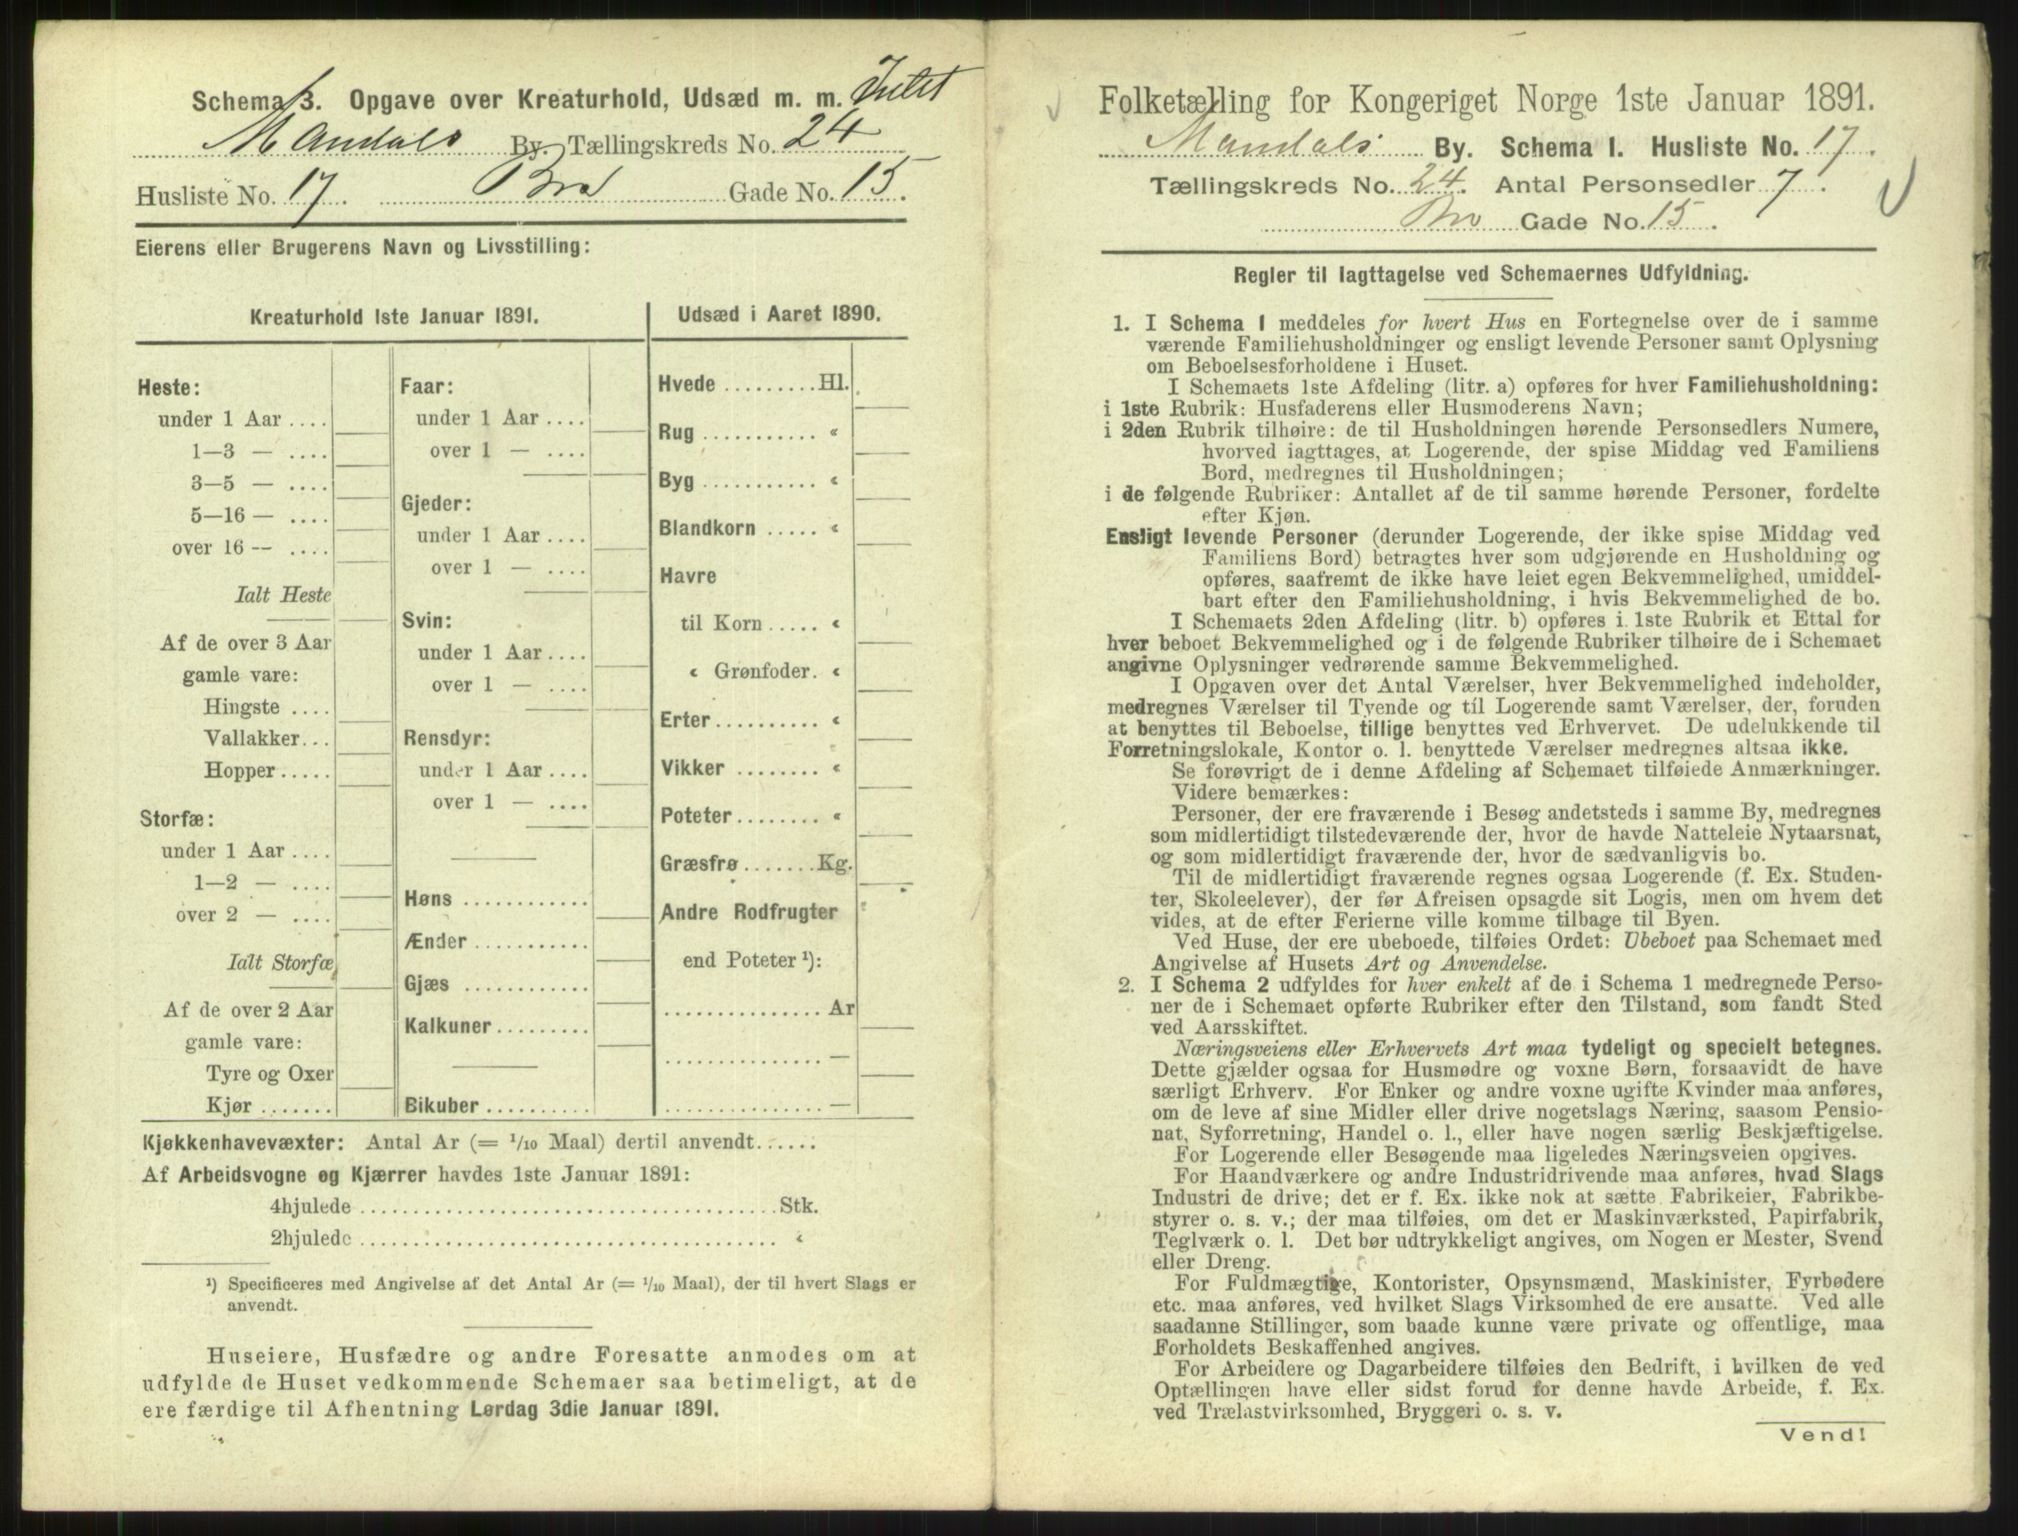 Schema 3. Opgave over Kreaturhold, Udsæd m. m. Intet
Mandals By. Tællingskreds No. 24
Husliste No. 17. Bro Gade No. 15.
Eierens eller Brugerens Navn og Livsstilling:
Kreaturhold 1ste Januar 1891.
Heste:
under 1 Aar ....
1—3 — ....
3—5 — ....
5—16 — ....
over 16 — ....
Ialt Heste
Af de over 3 Aar
gamle vare:
Hingste ....
Vallakker...
Hopper.....
Storfæ:
under 1 Aar ....
1—2 — ....
over 2 — ....
Ialt Storfæ
Af de over 2 Aar
gamle vare:
Tyre og Oxer
Kjør .......
Faar:
under 1 Aar ....
over 1 — ....
Gjeder:
under 1 Aar ....
over 1 — ....
Svin:
under 1 Aar ....
over 1 — ....
Rensdyr:
under 1 Aar ....
over 1 — ....
Høns ............
Ænder ...........
Gjæs ............
Kalkuner.........
Bikuber..........
Udsæd i Aaret 1890.
Hvede .........Hl.
Rug ........... «
Byg ........... «
Blandkorn ..... «
Havre
til Korn ..... «
« Grønfoder. «
Erter.......... «
Vikker ........ «
Poteter........ «
Græsfrø .......Kg.
Andre Rodfrugter
end Poteter ¹):
............... Ar
............... —
............... —
Kjøkkenhavevæxter: Antal Ar (= 1/10 Maal) dertil anvendt......
Af Arbeidsvogne og Kjærrer havdes 1ste Januar 1891:
4hjulede ....................................... Stk.
2hjulede ....................................... «
¹) Specificeres med Angivelse af det Antal Ar (= 1/10 Maal), der til hvert Slags er
anvendt.
Huseiere, Husfædre og andre Foresatte anmodes om at
udfylde de Huset vedkommende Schemaer saa betimeligt, at de
ere færdige til Afhentning Lørdag 3die Januar 1891.
Folketælling for Kongeriget Norge 1ste Januar 1891.
Mandals By. Schema 1. Husliste No. 17.
Tællingskreds No. 24. Antal Personsedler 7.
Bro Gade No. 15.
Regler til Iagttagelse ved Schemaernes Udfyldning.
1. I Schema 1 meddeles for hvert Hus en Fortegnelse over de i samme
værende Familiehusholdninger og ensligt levende Personer samt Oplysning
om Beboelsesforholdene i Huset.
I Schemaets 1ste Afdeling (litr. a) opføres for hver Familiehusholdning:
i 1ste Rubrik: Husfaderens eller Husmoderens Navn;
i 2den Rubrik tilhøire: de til Husholdningen hørende Personsedlers Numere,
hvorved iagttages, at Logerende, der spise Middag ved Familiens
Bord, medregnes til Husholdningen;
i de følgende Rubriker: Antallet af de til samme hørende Personer, fordelte
efter Kjøn.
Ensligt levende Personer (derunder Logerende, der ikke spise Middag ved
Familiens Bord) betragtes hver som udgjørende en Husholdning og
opføres, saafremt de ikke have leiet egen Bekvemmelighed, umiddel-
bart efter den Familiehusholdning, i hvis Bekvemmelighed de bo.
I Schemaets 2den Afdeling (litr. b) opføres i 1ste Rubrik et Ettal for
hver beboet Bekvemmelighed og i de følgende Rubriker tilhøire de i Schemaet
angivne Oplysninger vedrørende samme Bekvemmelighed.
I Opgaven over det Antal Værelser, hver Bekvemmelighed indeholder,
medregnes Værelser til Tyende og til Logerende samt Værelser, der, foruden
at benyttes til Beboelse, tillige benyttes ved Erhvervet. De udelukkende til
Forretningslokale, Kontor o. l. benyttede Værelser medregnes altsaa ikke.
Se forøvrigt de i denne Afdeling af Schemaet tilføiede Anmærkninger.
Videre bemærkes:
Personer, der ere fraværende i Besøg andetsteds i samme By, medregnes
som midlertidigt tilstedeværende der, hvor de havde Natteleie Nytaarsnat,
og som midlertidigt fraværende der, hvor de sædvanligvis bo.
Til de midlertidigt fraværende regnes ogsaa Logerende (f. Ex. Studen-
ter, Skoleelever), der før Afreisen opsagde sit Logis, men om hvem det
vides, at de efter Ferierne ville komme tilbage til Byen.
Ved Huse, der ere ubeboede, tilføies Ordet: Ubeboet paa Schemaet med
Angivelse af Husets Art og Anvendelse.
2. I Schema 2 udfyldes for hver enkelt af de i Schema 1 medregnede Perso-
ner de i Schemaet opførte Rubriker efter den Tilstand, som fandt Sted
ved Aarsskiftet.
Næringsveiens eller Erhvervets Art maa tydeligt og specielt betegnes.
Dette gjælder ogsaa for Husmødre og voxne Børn, forsaavidt de have
særligt Erhverv. For Enker og andre voxne ugifte Kvinder maa anføres,
om de leve af sine Midler eller drive nogetslags Næring, saasom Pensio-
nat, Syforretning, Handel o. l., eller have nogen særlig Beskjæftigelse.
For Logerende eller Besøgende maa ligeledes Næringsveien opgives.
For Haandværkere og andre Industridrivende maa anføres, hvad Slags
Industri de drive; det er f. Ex. ikke nok at sætte Fabrikeier, Fabrikbe-
styrer o. s. v.; der maa tilføies, om det er Maskinværksted, Papirfabrik,
Teglværk o. l. Det bør udtrykkeligt angives, om Nogen er Mester, Svend
eller Dreng.
For Fuldmægtige, Kontorister, Opsynsmænd, Maskinister, Fyrbødere
etc. maa anføres, ved hvilket Slags Virksomhed de ere ansatte. Ved alle
saadanne Stillinger, som baade kunne være private og offentlige, maa
Forholdets Beskaffenhed angives.
For Arbeidere og Dagarbeidere tilføies den Bedrift, i hvilken de ved
Optællingen have eller sidst forud for denne havde Arbeide, f. Ex.
ved Trælastvirksomhed, Bryggeri o. s. v.
Vend!